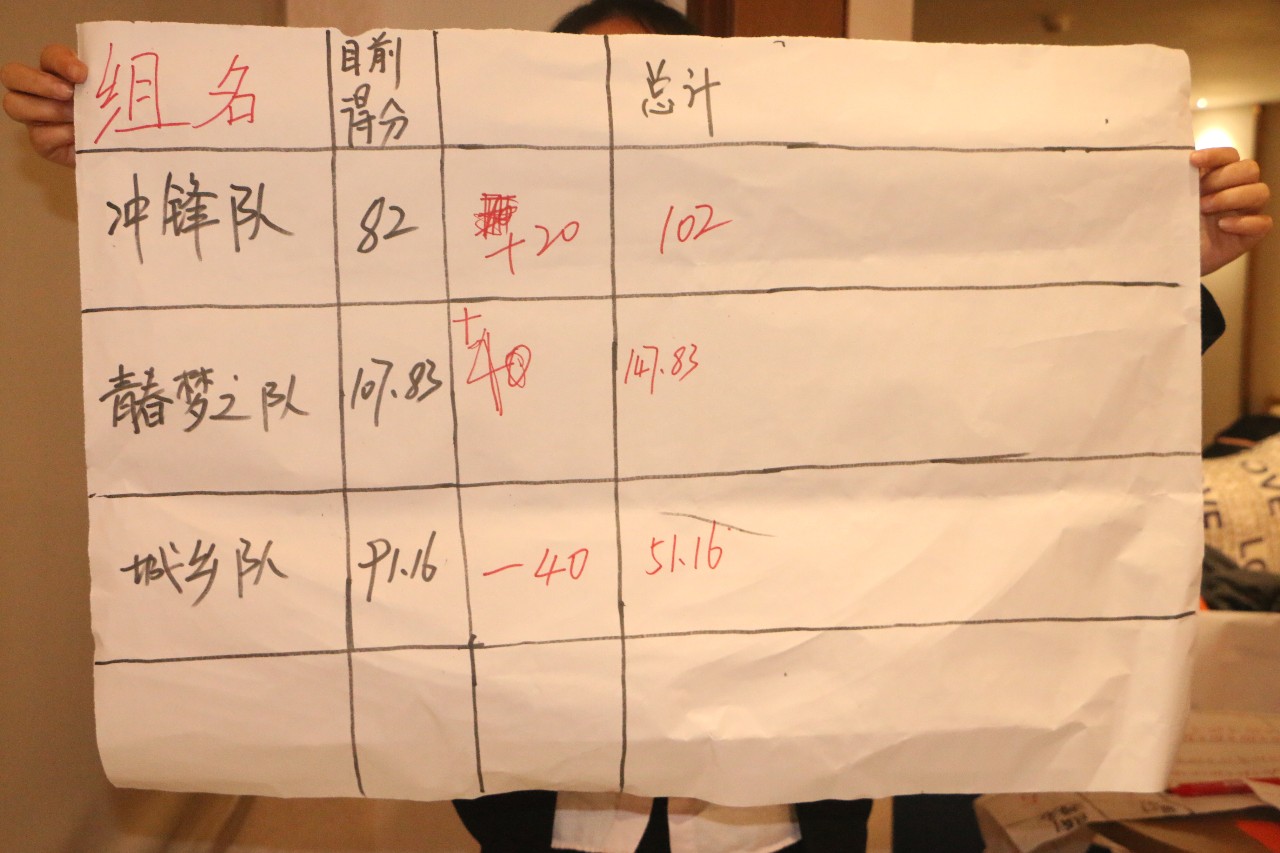 组名 目前得分 总计
冲锋队 82 +20 102
青春梦之队 107.83 +40 147.83
城乡队 91.16 -40 51.16